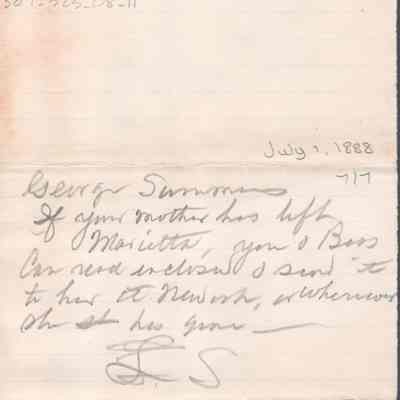 July 1, 1888
7/7
George Summers
If your mother has left
Marietta, you & Boos
Can read enclosed & send it
to her at Newark, or wherever
she has gone —
S. S